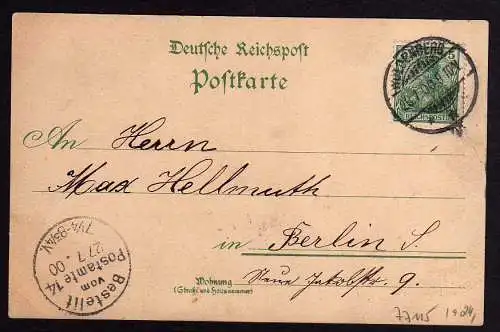 Deutsche Reichspost
Postkarte
5
REICHSPOST
An Herrn
Max Hellmuth
in Berlin S.
Wohnung
(Straße und Hausnummer)
Neue Jakobstr. 9.
Bestellt
vom
Postamte 14
27.7.00
7¼-8¾V
77115